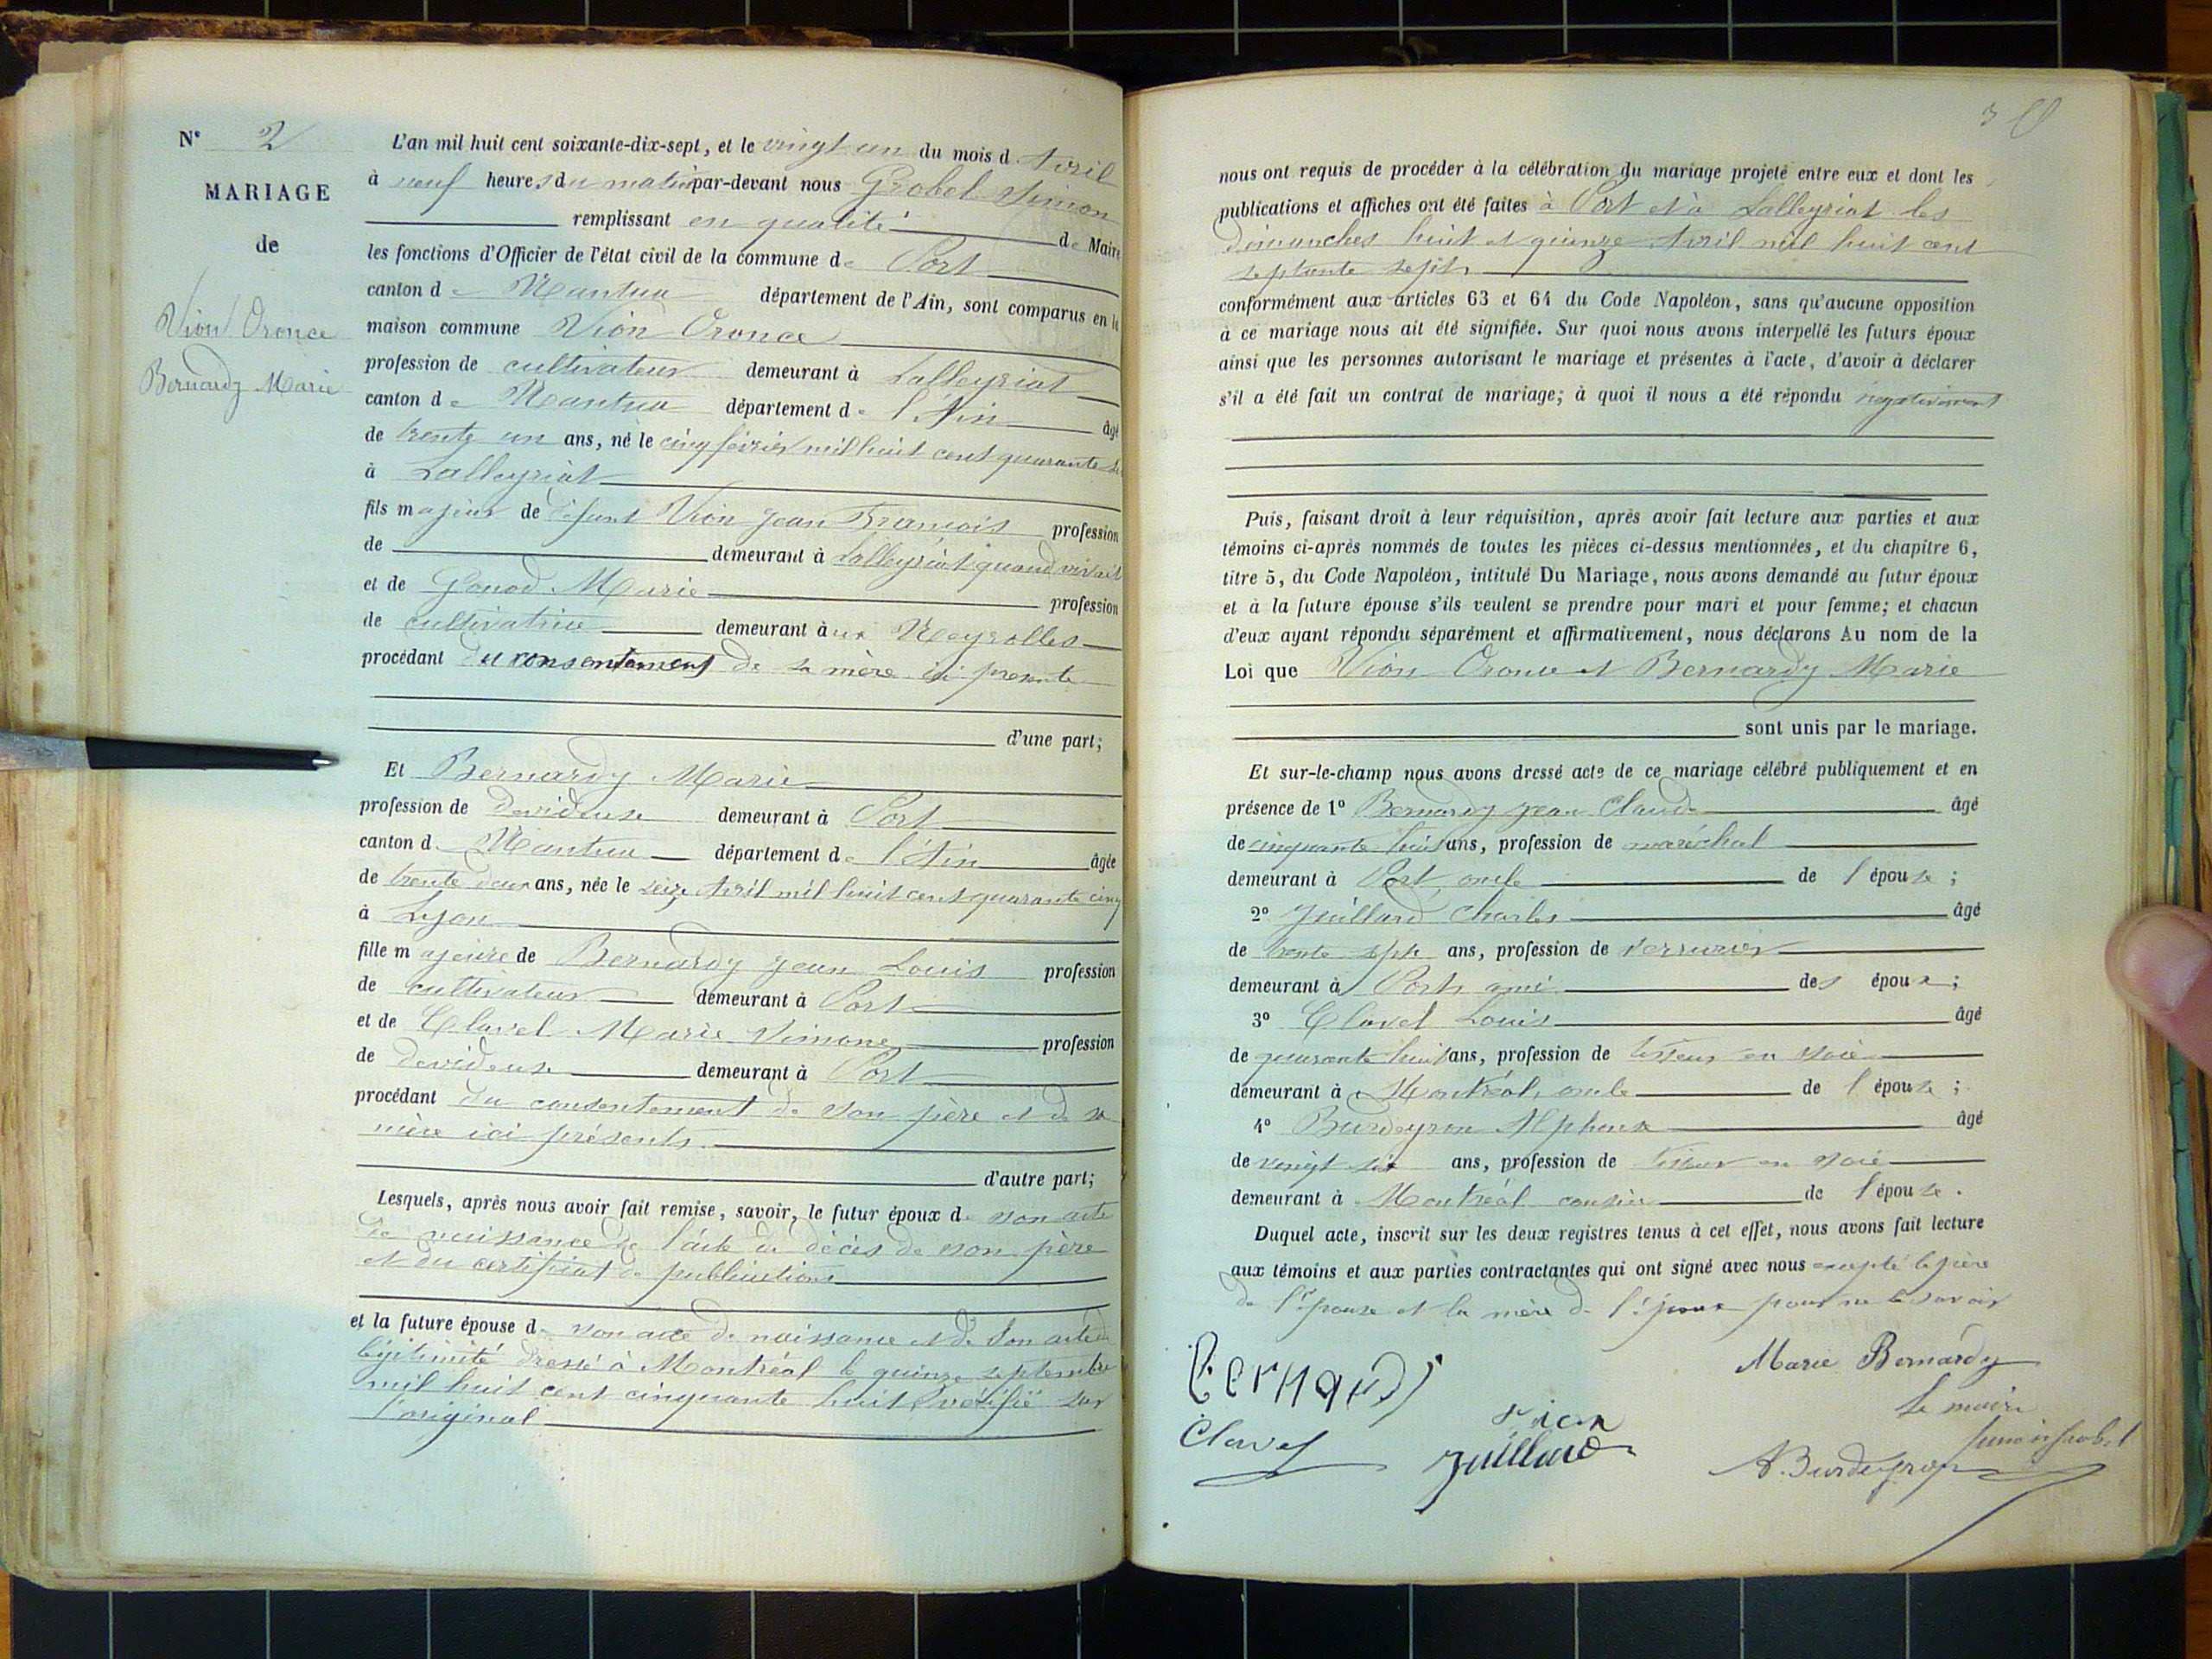 N° 2
MARIAGE
de
Vion Oronce
Bernardy Marie
L'an mil huit cent soixante-dix-sept, et le vingt un du mois d'Avril
à neuf heures du matin par-devant nous Grobel Simon
remplissant en qualité de Maire
les fonctions d'Officier de l'état civil de la commune de Port
canton de Nantua département de l'Ain, sont comparus en la
maison commune Vion Oronce
profession de cultivateur demeurant à Lalleyriat
canton de Nantua département de l'Ain âgé
de trente un ans, né le cinq février mil huit cent quarante
à Lalleyriat
fils majeur de défunt Vion Jean François profession
de demeurant à Lalleyriat quand vivait
et de Gonod Marie profession
de cultivatrice demeurant aux Neyrolles
procédant du consentement de sa mère ici présente
d'une part;
Et Bernardy Marie
profession de devideuse demeurant à Port
canton de Nantua département de l'Ain âgée
de trente deux ans, née le seize Avril mil huit cent quarante cinq
à Lyon
fille majeure de Bernardy Jean Louis profession
de cultivateur demeurant à Port
et de Clavel Marie Simone profession
de devideuse demeurant à Port
procédant du consentement de son père et de sa
mère ici présents
d'autre part;
Lesquels, après nous avoir fait remise, savoir, le futur époux de son acte
de naissance de l'acte de décès de son père
et du certificat de publications
et la future épouse de son acte de naissance et de son acte de
légitimité dressé à Montréal le quinze septembre
mil huit cent cinquante huit vérifié sur
l'original
30
nous ont requis de procéder à la célébration du mariage projeté entre eux et dont les
publications et affiches ont été faites à Port et à Lalleyriat les
dimanches huit et quinze Avril mil huit cent
septante sept
conformément aux articles 63 et 64 du Code Napoléon, sans qu'aucune opposition
à ce mariage nous ait été signifiée. Sur quoi nous avons interpellé les futurs époux
ainsi que les personnes autorisant le mariage et présentes à l'acte, d'avoir à déclarer
s'il a été fait un contrat de mariage; à quoi il nous a été répondu négativement
Puis, faisant droit à leur réquisition, après avoir fait lecture aux parties et aux
témoins ci-après nommés de toutes les pièces ci-dessus mentionnées, et du chapitre 6,
titre 5, du Code Napoléon, intitulé Du Mariage, nous avons demandé au futur époux
et à la future épouse s'ils veulent se prendre pour mari et pour femme; et chacun
d'eux ayant répondu séparément et affirmativement, nous déclarons Au nom de la
Loi que Vion Oronce et Bernardy Marie
sont unis par le mariage.
Et sur-le-champ nous avons dressé acte de ce mariage célébré publiquement et en
présence de 1° Bernardy Jean Claude âgé
de cinquante huit ans, profession de maréchal
demeurant à Port, oncle de l'épouse;
2° Juillard Charles âgé
de trente sept ans, profession de serrurier
demeurant à Port, ami des époux;
3° Clavel Louis âgé
de quarante huit ans, profession de tisseur en soie
demeurant à Montréal, oncle de l'épouse;
4° Burdeyron Alphonse âgé
de vingt six ans, profession de tisseur en soie
demeurant à Montréal cousin de l'épouse.
Duquel acte, inscrit sur les deux registres tenus à cet effet, nous avons fait lecture
aux témoins et aux parties contractantes qui ont signé avec nous excepté le père
de l'épouse et la mère de l'époux pour ne le savoir
Bernardy
Marie Bernardy
Le maire
Simon Grobel
Clavel
Vion
Juillard
A. Burdeyron